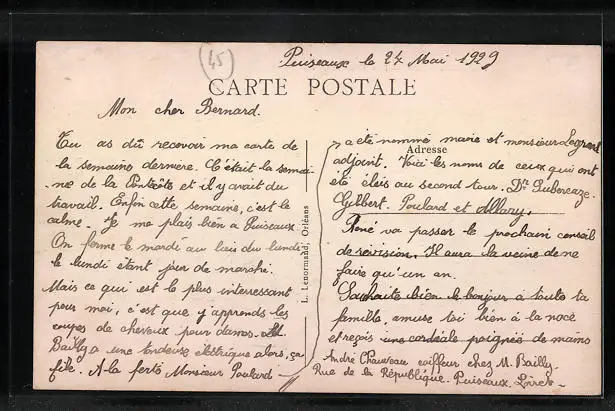 45
Puiseaux le 24 Mai 1929
CARTE POSTALE
Mon cher Bernard.
Tu as dû recevoir ma carte de
la semaine dernière. C'était la semai-
ne de la Pentecôte et il y avait du
travail. Enfin cette semaine, c'est le
calme. Je me plais bien à Puiseaux
On ferme le mardi au lieu du lundi
le lundi étant jour de marché.
Mais ce qui est le plus interessant
pour moi, c'est que j'apprends les
coupes de cheveux pour dames. M.
Bailly a une tondeuse électrique alors, ça
file. A la ferté Monsieur Poulard
L. Lenormand, Orléans
Adresse
a été nommé maire et monsieur Legrand
adjoint. Voici les noms de ceux qui ont
été élus au second tour. Dr
Gilbert. Poulard et Allary.
René va passer le prochain conseil
de révision. Il aura la veine de ne
faire qu'un an.
Souhaite bien le bonjour à toute ta
famille, amuse toi bien à la noce
et reçois une cordiale poignée de mains
André Chauveau coiffeur chez M. Bailly.
Rue de la République. Puiseaux. Loiret